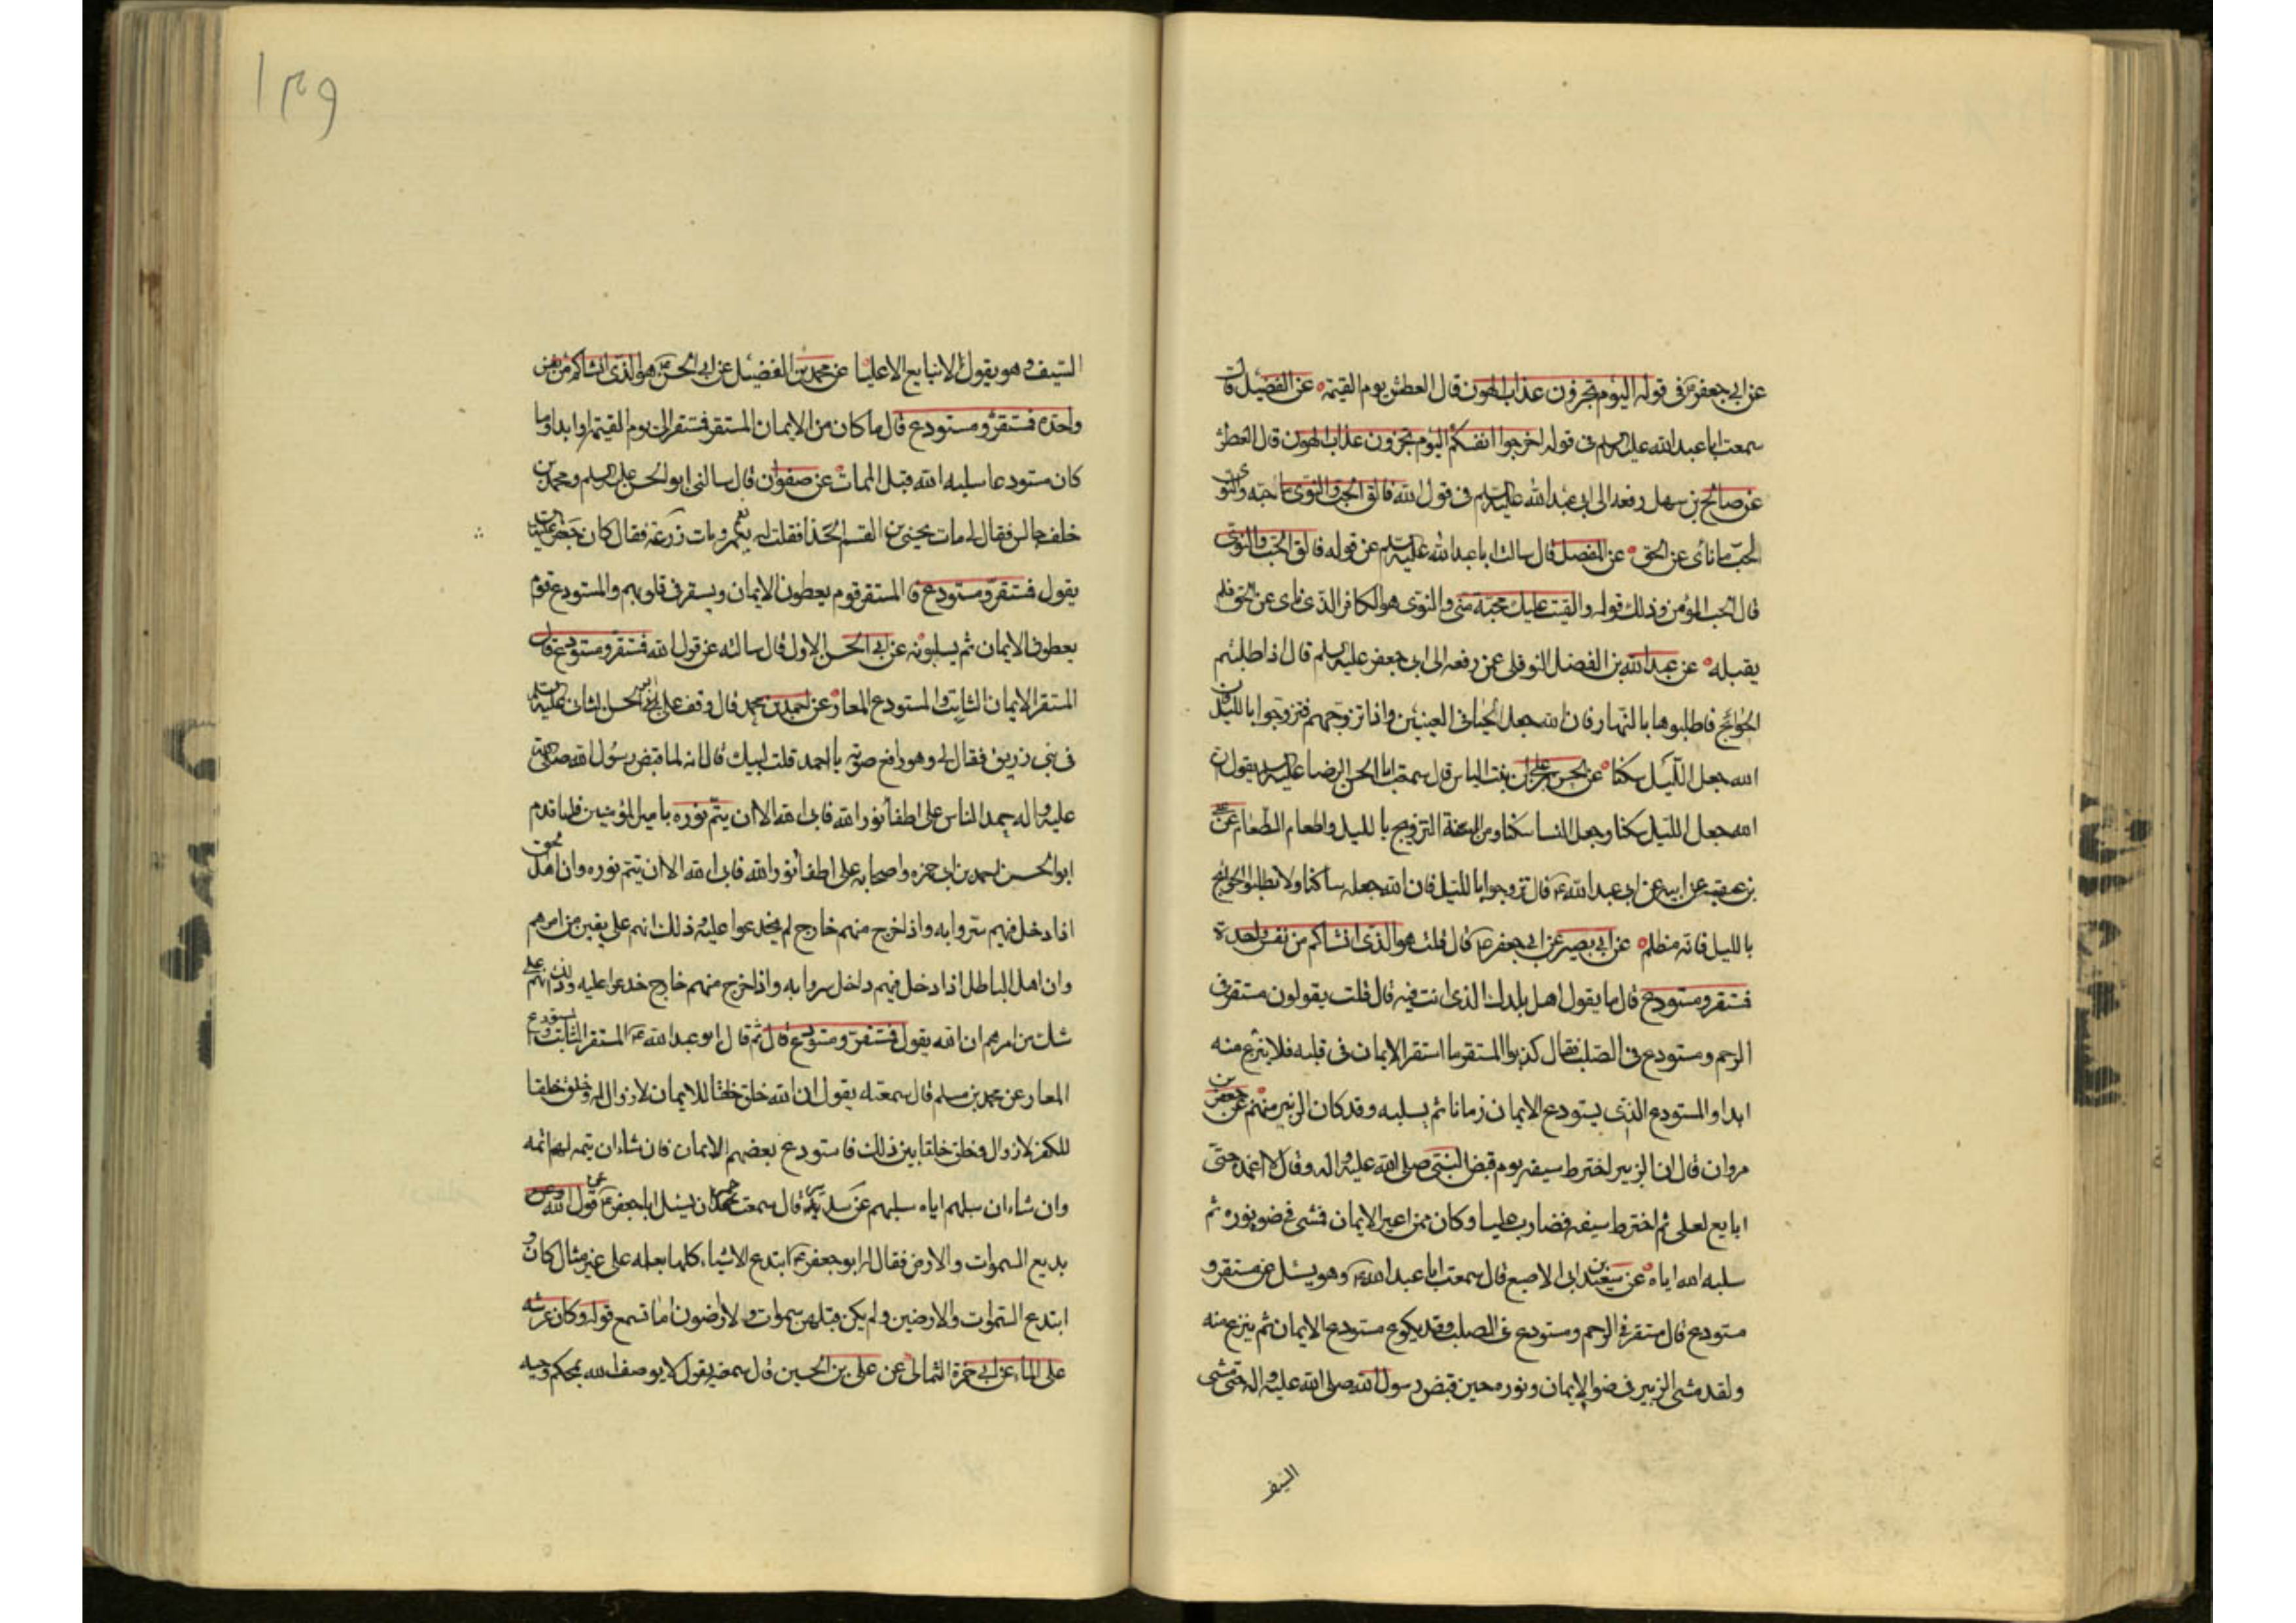 عن ابي جعفر ع في قوله اليوم تجزون عذاب الهون قال العطش يوم القيمة عن الفضيل قال
سمعت ابا عبد الله عليه السلم في قوله اخرجوا انفسكم اليوم تجزون عذاب الهون قال العطش
عن صالح بن سهل رفعه الى ابي عبد الله عليه السلم في قول الله فالق الحب والنوى ما حبه والنوى
الحب ما ناى عن الحق عن المفضل قال سالت ابا عبد الله عليه السلم عن قوله فالق الحب والنوى
قال الحب المؤمن وذلك قوله والقيت عليك محبة مني والنوى هو الكافر الذى ناى عن الحق فلم
يقبله عن عبد الله بن الفضل النوفلي عمن رفعه الى ابي جعفر عليه السلم قال اذا طلبتم
الحوائج فاطلبوها بالنهار فان الله جعل الحيا في العينين واذا تزوجتم فتزوجوا بالليل فان
الله جعل الليل سكنا عن الحسن بن علي بن بنت الياس قال سمعت ابا الحسن الرضا عليه السلم يقول ان
الله جعل الليل سكنا وجعل النسا سكنا ومن السنة التزويج بالليل واطعام الطعام عن علي
بن عقبه عن ابيه عن ابي عبد الله ع قال تزوجوا بالليل فان الله جعله ساكنا ولا تطلبوا الحوائج
بالليل فانه مظلم عن ابي بصير عن ابي جعفر ع قال قلت هو الذى انشاكم من نفس واحدة
فمستقر ومستودع قال ما يقول اهل بلدك الذى انت فيه قال قلت يقولون مستقر في
الرحم ومستودع في الصلب فقال كذبوا المستقر ما استقر الايمان في قلبه فلا ينزع منه
ابدا والمستودع الذى يستودع الايمان زمانا ثم يسلبه وقد كان الزبير منهم عن جعفر بن
مروان قال ان الزبير اخترط سيفه يوم قبض النبي صلى الله عليه واله وقال لا اغمده حتى
ابايع لعلي ثم اخترط سيفه فضارب عليا وكان ممن اعير الايمان فمشى في ضو نوره ثم
سلبه الله اياه عن سعيد بن ابي الاصبع قال سمعت ابا عبد الله ع وهو يسئل عن مستقر و
مستودع قال مستقر في الرحم ومستودع في الصلب وقد يكون مستودع الايمان ثم ينزع منه
ولقد مشى الزبير في ضو الايمان ونوره حين قبض رسول الله صلى الله عليه واله حتى مشى
السيف
١٣٩
السيف وهو يقول لا نبايع الا عليا عن محمد بن الفضيل عن ابي الحسن ع هو الذى انشاكم من نفس
واحدة فمستقر ومستودع قال ما كان من الايمان المستقر فمستقر الى يوم القيمة او ابدا وما
كان مستودعا سلبه الله قبل الممات عن صفوان قال سالني ابو الحسن عليه السلم ومحمد بن
خلف جالس فقال لي مات يحيى بن القسم الحذا فقلت له نعم ومات زرعة فقال كان جعفر عليه السلم
يقول فمستقر ومستودع فالمستقر قوم يعطون الايمان ويستقر في قلوبهم والمستودع قوم
يعطون الايمان ثم يسلبونه عن ابي الحسن الاول قال سالته عن قول الله فمستقر ومستودع قال
المستقر الايمان الثابت والمستودع المعار عن احمد بن محمد قال وقف علي ابو الحسن الثاني عليه السلم
في بني زريق فقال لي وهو رافع صوته يا احمد قلت لبيك قال انه لما قبض رسول الله صلى الله
عليه واله جهد الناس على اطفا نور الله فابى الله الا ان يتم نوره بامير المؤمنين فلما قدم
ابو الحسن جهد بن ابي حمزه واصحابه على اطفا نور الله فابى الله الا ان يتم نوره وان اهل الحق
اذا دخل فيهم سروا به واذا خرج منهم خارج لم يخدعوا عليه وذلك انهم على يقين من امرهم
وان اهل الباطل اذا دخل فيهم داخل سروا به واذا خرج منهم خارج خدعوا عليه وذلك انهم على
شك من امرهم ان الله يقول فمستقر ومستودع قال ثم قال ابو عبد الله ع المستقر الثابت والمستودع
المعار عن محمد بن مسلم قال سمعته يقول ان الله خلق خلقا للايمان لا زوال له وخلق خلقا
للكفر لا زوال له وخلق خلقا بين ذلك فاستودع بعضهم الايمان فان شاء ان يتمه لهم اتمه
وان شاء ان يسلبهم اياه سلبهم عن سدير قال سمعت حمران يسئل ابا جعفر ع عن قول الله
بديع السموات والارض فقال له ابو جعفر ع ابتدع الاشياء كلها بعلمه على غير مثال كان و
ابتدع السموات والارضين ولم يكن قبلهن سموات ولا ارضون اما تسمع قوله وكان عرشه
على الماء عن ابي حمزة الثمالي عن علي بن الحسين قال سمعته يقول لا يوصف الله بمحكم وحيه